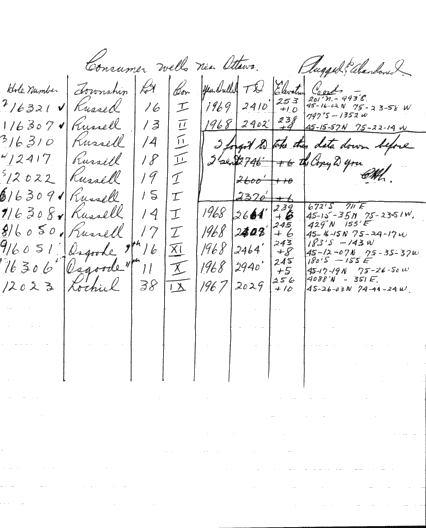 Consumer wells near Ottawa. Plugged & Abandoned
Hole Number Township Lot Con Year Drilled T D Elevation Coord
2 16321 ✓ Russell 16 I 1969 2410' 253 +10 201'N. - 993'E. 45-16-12N 75-23-58 W
1 16307 ✓ Russell 13 II 1968 2902' 238 +9 747'S - 1352 W 45-15-57N 75-22-14 W
3 16310 Russell 14 II I forgot to take this data down before
4 12417 Russell 18 II I sent 2746' +6 the Copy to you
5 12022 Russell 19 I 2600' +10
6 16309 ✓ Russell 15 I 2370' +6
7 16308 ✓ Russell 14 I 1968 239 +6 672'S 711 E 45-15-35N 75-23-51W.
8 16050 ✓ Russell 17 I 1968 2408' 245 +6 429'N 155'E 45-16-15N 75-24-17W
9 16051 Osgoode 16 XI 1968 2464' 243 +8 183'S - 143 W 45-12-07N 75-35-37W
16306 Osgoode 11 X 1968 2940' 245 +5 180'S - 155 E 45-17-19N 75-26-50W
12023 Lochiel 38 IX 1967 2029 256 +10 4088'N - 351 E. 45-26-03N 74-44-24W.